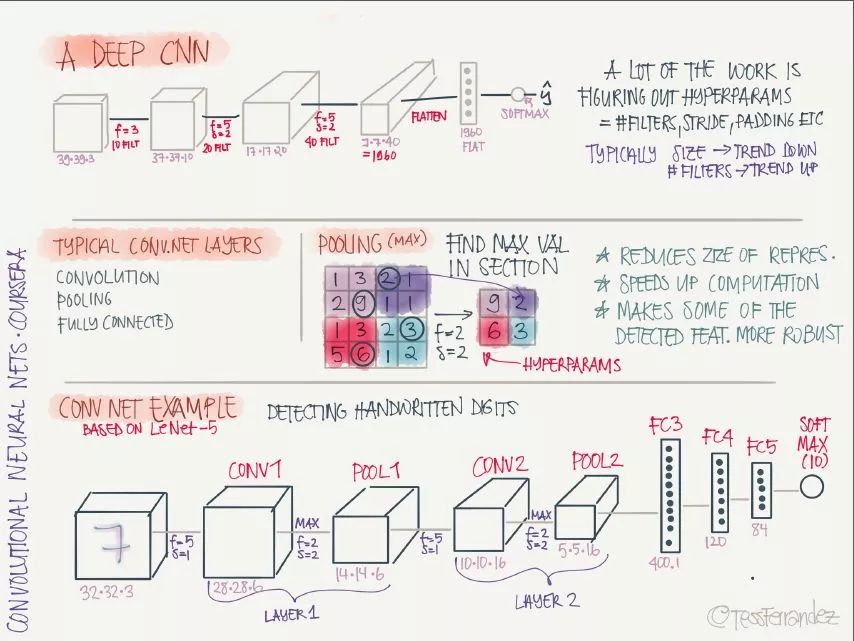 A DEEP CNN
39·39·3
f=3
10 FILT
37·37·10
f=5
s=2
20 FILT
17·17·20
f=5
s=2
40 FILT
7·7·40
=1960
FLATTEN
1960
FLAT
SOFTMAX
ŷ
A LOT OF THE WORK IS
FIGURING OUT HYPERPARAMS
= #FILTERS, STRIDE, PADDING ETC
TYPICALLY SIZE → TREND DOWN
#FILTERS → TREND UP
TYPICAL CONV.NET LAYERS
CONVOLUTION
POOLING
FULLY CONNECTED
POOLING (MAX)
FIND MAX VAL
IN SECTION
1 3 2 1
2 9 1 1
1 3 2 3
5 6 1 2
f=2
s=2
9 2
6 3
HYPERPARAMS
★ REDUCES ZIZE OF REPRES.
★ SPEEDS UP COMPUTATION
★ MAKES SOME OF THE
DETECTED FEAT. MORE ROBUST
CONV NET EXAMPLE
BASED ON LeNet-5
DETECTING HANDWRITTEN DIGITS
7
32·32·3
f=5
s=1
CONV1
28·28·6
MAX
f=2
s=2
POOL1
14·14·6
LAYER 1
f=5
s=1
CONV2
10·10·16
MAX
f=2
s=2
POOL2
5·5·16
LAYER 2
FC3
400,1
FC4
120
FC5
84
SOFT
MAX
(10)
CONVOLUTIONAL NEURAL NETS · COURSERA
@TessFerrandez